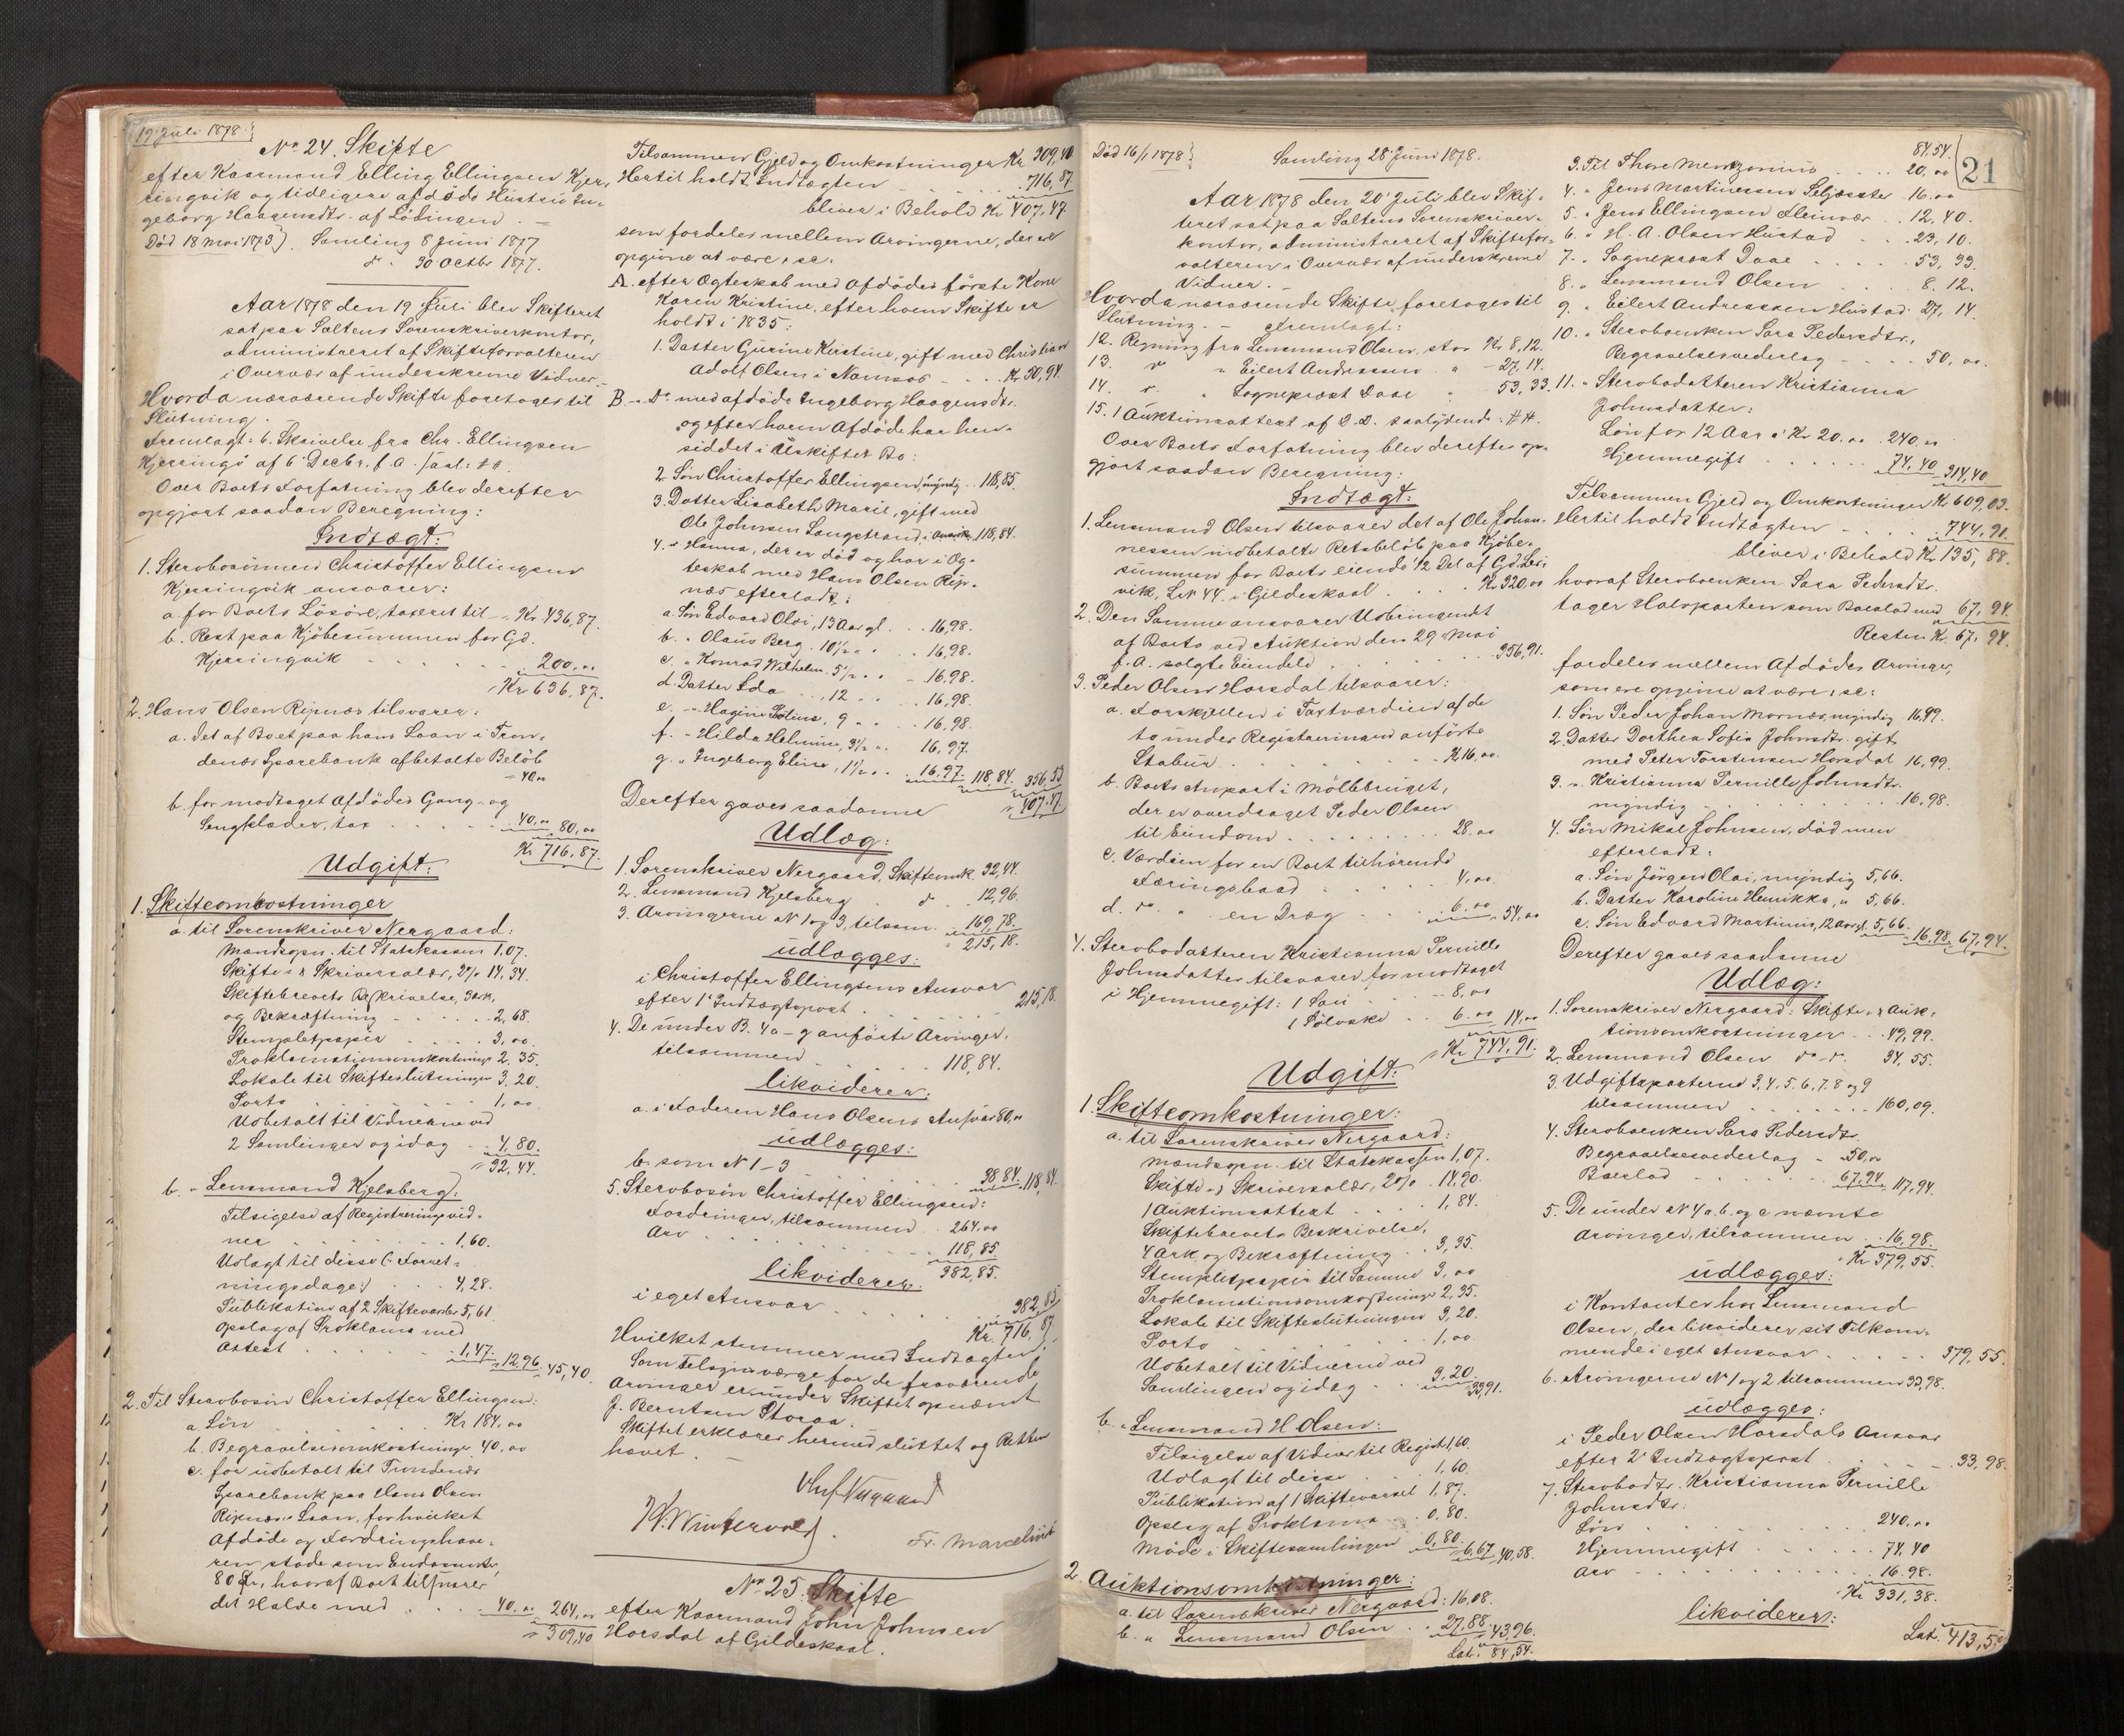 19 Juli 1878
No. 24. Skifte
efter Kaarmand Elling Ellingsen Kjer-
ringvik og tidligere afdøde Hustru In-
geborg Haagensdtr. af Lødingen
Død 18 Mai 1873). Samling 8 Juni 1877
do. 30 Octbr 1877.
Aar 1878 den 19 Juli blev Skifteret
sat paa Saltens Sorenskriverkontor,
administreret af Skifteforvalteren
i Overvær af underskrevne Vidner.
Hvorda nærværende Skifte foretoges til
Slutning.
Fremlagt: 6. Skrivelse fra Chr. Ellingsen
Kjerringø af 6 Decbr. f. A.
Over Boets Forfatning blev derefter
opgjort saadan Beregning:
Indtægt:
1. Stervbosønnen Christoffer Ellingsen
Kjerringvik ansvarer:
a. for Boets Løsøre, taxeret til - Kr 436,87.
b. Rest paa Kjøbesummen for Gd.
Kjerringvik 200,00
Kr 636,87.
2. Hans Olsen Ripnæs tilsvarer:
a. det af Boet paa hans Laan i Tron-
denæs Sparebank afbetalte Beløb
40,00
b. for modtaget Afdødes Gang- og
Sengklæder, tax 40,00 80,00
Kr 716,87.
Udgift:
1. Skifteomkostninger
a. til Sorenskriver Nergaard:
Mandspen. til Statskassen 1,07.
Skifte- & Skriversalær, 2% 14,34.
Skiftebrevets Beskrivelse, 3 Ark,
og Bekræftning 2,68.
Stempletpapir 3,00
Proklamationsomkostninger 2,35.
Lokale til Skifteslutningen 3,20.
Porto 1,00
Udbetalt til Vidnerne ved
2 Samlinger og idag 4,80.
32,44.
b. " Lensmand Kjelsberg:
Tilsigelse af Registreringsvid-
ner 1,60.
Udlagt til disse (: Forret-
ningsdage:) 4,28.
Publikation af 2 Skiftevarsler 5,61
Opslag af Proklama med
Attest 1,47. 12,96. 45,40.
2. Til Stervbosøn Christoffer Ellingsen:
a. Løn Kr 184,00
b. Begravelsesomkostninger 40,00
c. for udbetalt til Trondenæs
Sparebank paa Hans Olsen
Ripnæs's Laan, for hvilket
Afdøde og Fordringshave-
ren stode som Endossenter,
80 Kr, hvoraf Boet tilsvarer
det Halve med 40,00 264,00
309,40
Tilsammen Gjeld og Omkostninger Kr 309,40
Hertil holdt Indtægten 716,87
bliver i Behold Kr 407,47.
som fordeles mellem Arvingerne, der ere
opgivne at være, se:
A. efter Ægteskab med Afdødes første Kone
Karen Kristine, efter hvem Skifte er
holdt i 1835:
1. Datter Gurine Kirstine, gift med Christian
Adolf Olsen i Namsos Kr 50,94.
B. - Do med afdøde Ingeborg Haagensdtr.
og efter hvem Afdøde har hen-
siddet i Uskiftet Bo:
2. Søn Christoffer Ellingsen, myndig 118,85.
3. Datter Lisabeth Marie, gift med
Ole Johnsen Langstrand, 118,84.
4. " Hanna, der er død og har i Æg-
teskab med Hans Olsen Rip-
næs efterladt:
a. Søn Edvard Olai, 13 Aar gl. 16,98.
b. " Olaus Berg 10½ " " 16,98.
c. " Konrad Wilhelm 5½ " " 16,98.
d. Datter Ida 12 " 16,98.
e. " Hagine Petine, 9 " 16,98.
f. " Hilda Helmine, 3½ " 16,97.
g. " Ingeborg Eline, 1½ " 16,97. 118,84. 356,53
407,47
Derefter gaves saadanne
Udlæg:
1. Sorenskriver Nergaard, Skifteomk. 32,44.
2. Lensmand Kjelsberg do 12,96.
3. Arvingerne N 1 og 3, tilsam. 169,78.
215,18.
udlægges:
i Christoffer Ellingsens Ansvar
efter 1' Indtægtspost 215,18.
4. De under B. 4 a-g anførte Arvinger,
tilsammen 118,84.
likviderer:
a. i Faderen Hans Olsens Ansvar 80,00
udlægges:
b. som N 1-3 38,84. 118,84.
5. Stervbosøn Christoffer Ellingsen:
Fordringer, tilsammen 264,00
Arv 118,85.
382,85.
likviderer:
i eget Ansvar 382,85
Kr. 716,87.
Hvilket stemmer med Indtægten.
Som Tilsynsværge for de fraværende
Arvinger er under Skiftet opnævnt
J. Berntsen Storaa.
Skiftet erklæres hermed sluttet og Retten
hævet.
Nergaard
H. Wintervold. Fr. Marcelius
No. 25. Skifte
efter Kaarmand John Johnsen
Horsdal af Gildeskaal.
Død 16/1 1878 Samling 28 Juni 1878.
21
Aar 1878 den 20 Juli blev Skif-
teret sat paa Saltens Sorenskriver-
kontor, administreret af Skiftefor-
valteren i Overvær af underskrevne
Vidner.
Hvorda nærværende Skifte foretoges til
Slutning. - Fremlagt:
12. Regning fra Lensmand Olsen, stor Kr 8,12.
13. do " Eilert Andreassen " - 27,14.
14. do " Sogneprest Daae " 53,33.
15. 1 Auktionsattest af D. D. saalydende: ##.
Over Boets Forfatning blev derefter op-
gjort saadan Beregning:
Indtægt:
1. Lensmand Olsen tilsvarer det af Ole Johan-
nessen indbetalte Restbeløb paa Kjøbe-
summen for Boets eiende ½ Del af Gd. Lei-
vik, LN 44, i Gildeskaal Kr 320,00
2. Den Samme ansvarer Udbringendet
af Boets ved Auktion den 29 Mai
f. A. solgte Eiendele 356,91.
3. Peder Olsen Horsdal tilsvarer:
a. Forskjellen i Taxtværdien af de
to under Registreringen anførte
Stabur Kr 16,00
b. Boets Anpart i Møllebruget,
der er overdraget Peder Olsen
til Eiendom 28,00
c. Værdien for en Boet tilhørende
Færingsbaad 4,00
d. do. " en Dræg 6,00 54,00
4. Stervbodatteren Kristianna Pernille
Johnsdatter tilsvarer for modtaget
i Hjemmegift: 1 Sau 8,00
1 Sølvske 6,00 14,00
Kr 744,91.
Udgift:
1. Skifteomkostninger:
a. til Sorenskriver Nergaard:
Mandspen. til Statskassen 1,07.
Skifte- & Skriversalær, 2% 14,90.
1 Auktionsattest 1,84.
Skiftebrevets Beskrivelse,
4 Ark og Bekræftning 3,35.
Stempletpapir til Samme 3,00
Proklamationsomkostninger 2,35.
Lokale til Skifteslutningen 3,20.
Porto 1,00
Udbetalt til Vidnerne ved
Samlingen og idag 3,20.
33,91.
b. " Lensmand H. Olsen:
Tilsigelse af Vidner til Registr. 1,60.
Udlagt til disse 1,60.
Publikation af 1 Skiftevarsel 1,87.
Opslag af Proklama 0,80.
Møde i Skiftesamlingen 0,80. 6,67. 40,58.
2. Auktionsomkostninger:
a. til Sorenskriver Nergaard: 16,08.
b. " Lensmand Olsen 27,88. 43,96.
Lat. 84,54.
84,54.
3. Til Thore Mentzonius 20,00
4. " Jens Martinussen 16,00
5. " Jens Ellingsen Fleinvær 12,40.
6. " H. A. Olsen Hustad 23,10.
7. " Sogneprest Daae 53,33.
8. " Lensmand Olsen 8,12.
9. " Eilert Andreassen Hustad 27,14.
10. " Stervboenken Sara Pedersdtr.,
Begravelsesvederlag 50,00
11. " Stervbodatteren Kristianna
Johnsdatter:
Løn for 12 Aar a Kr 20,00 240,00
Hjemmegift 74,40 314,40
Tilsammen Gjeld og Omkostninger Kr 609,03.
Hertil holdt Indtægten 744,91.
bliver i Behold Kr 135,88.
hvoraf Stervboenken Sara Pedersdtr.
tager Halvparten som Boeslod med 67,94.
Resten Kr 67,94.
fordeles mellem Afdødes Arvinger,
som ere opgivne at være, se:
1. Søn Peder Johan Mornæs, myndig 16,99.
2. Datter Dorthea Sofia Johnsdtr. gift
med Peter Torstensen Horsdal 16,99.
3. " Kristianna Pernille Johnsdtr.
myndig 16,98.
4. Søn Mikal Johnsen, død men
efterladt:
a. Søn Jørgen Olai, myndig 5,66.
b. Datter Karoline Henrikka, " 5,66.
c. Søn Edvard Martinus, 12 Aar gl. 5,66. 16,98. 67,94.
Derefter gaves saadanne
Udlæg:
1. Sorenskriver Nergaard: Skifte- & Auk-
tionsomkostninger 49,99.
2. Lensmand Olsen do- do. 34,55.
3. Udgiftsposterne 3, 4, 5, 6, 7, 8 og 9
tilsammen 160,09.
4. Stervboenken Sara Pedersdtr.
Begravelsesvederlag 50,00
Boeslod 67,94. 117,94.
5. De under N 4 a. b. og c nævnte
Arvinger, tilsammen 16,98.
Kr 379,55.
udlægges:
i Kontanter hos Lensmand
Olsen, der likviderer sit Tilkom-
mende i eget Ansvar 379,55.
6. Arvingerne N 1 og 2 tilsammen 33,98.
udlægges:
i Peder Olsen Horsdals Ansvar
efter 2' Indtægtspost 33,98.
7. Stervbodtr. Kristianna Pernille
Johnsdtr:
Løn 240,00
Hjemmegift 74,40
Arv 16,98.
Kr 331,38.
likviderer:
Lat. 413,53